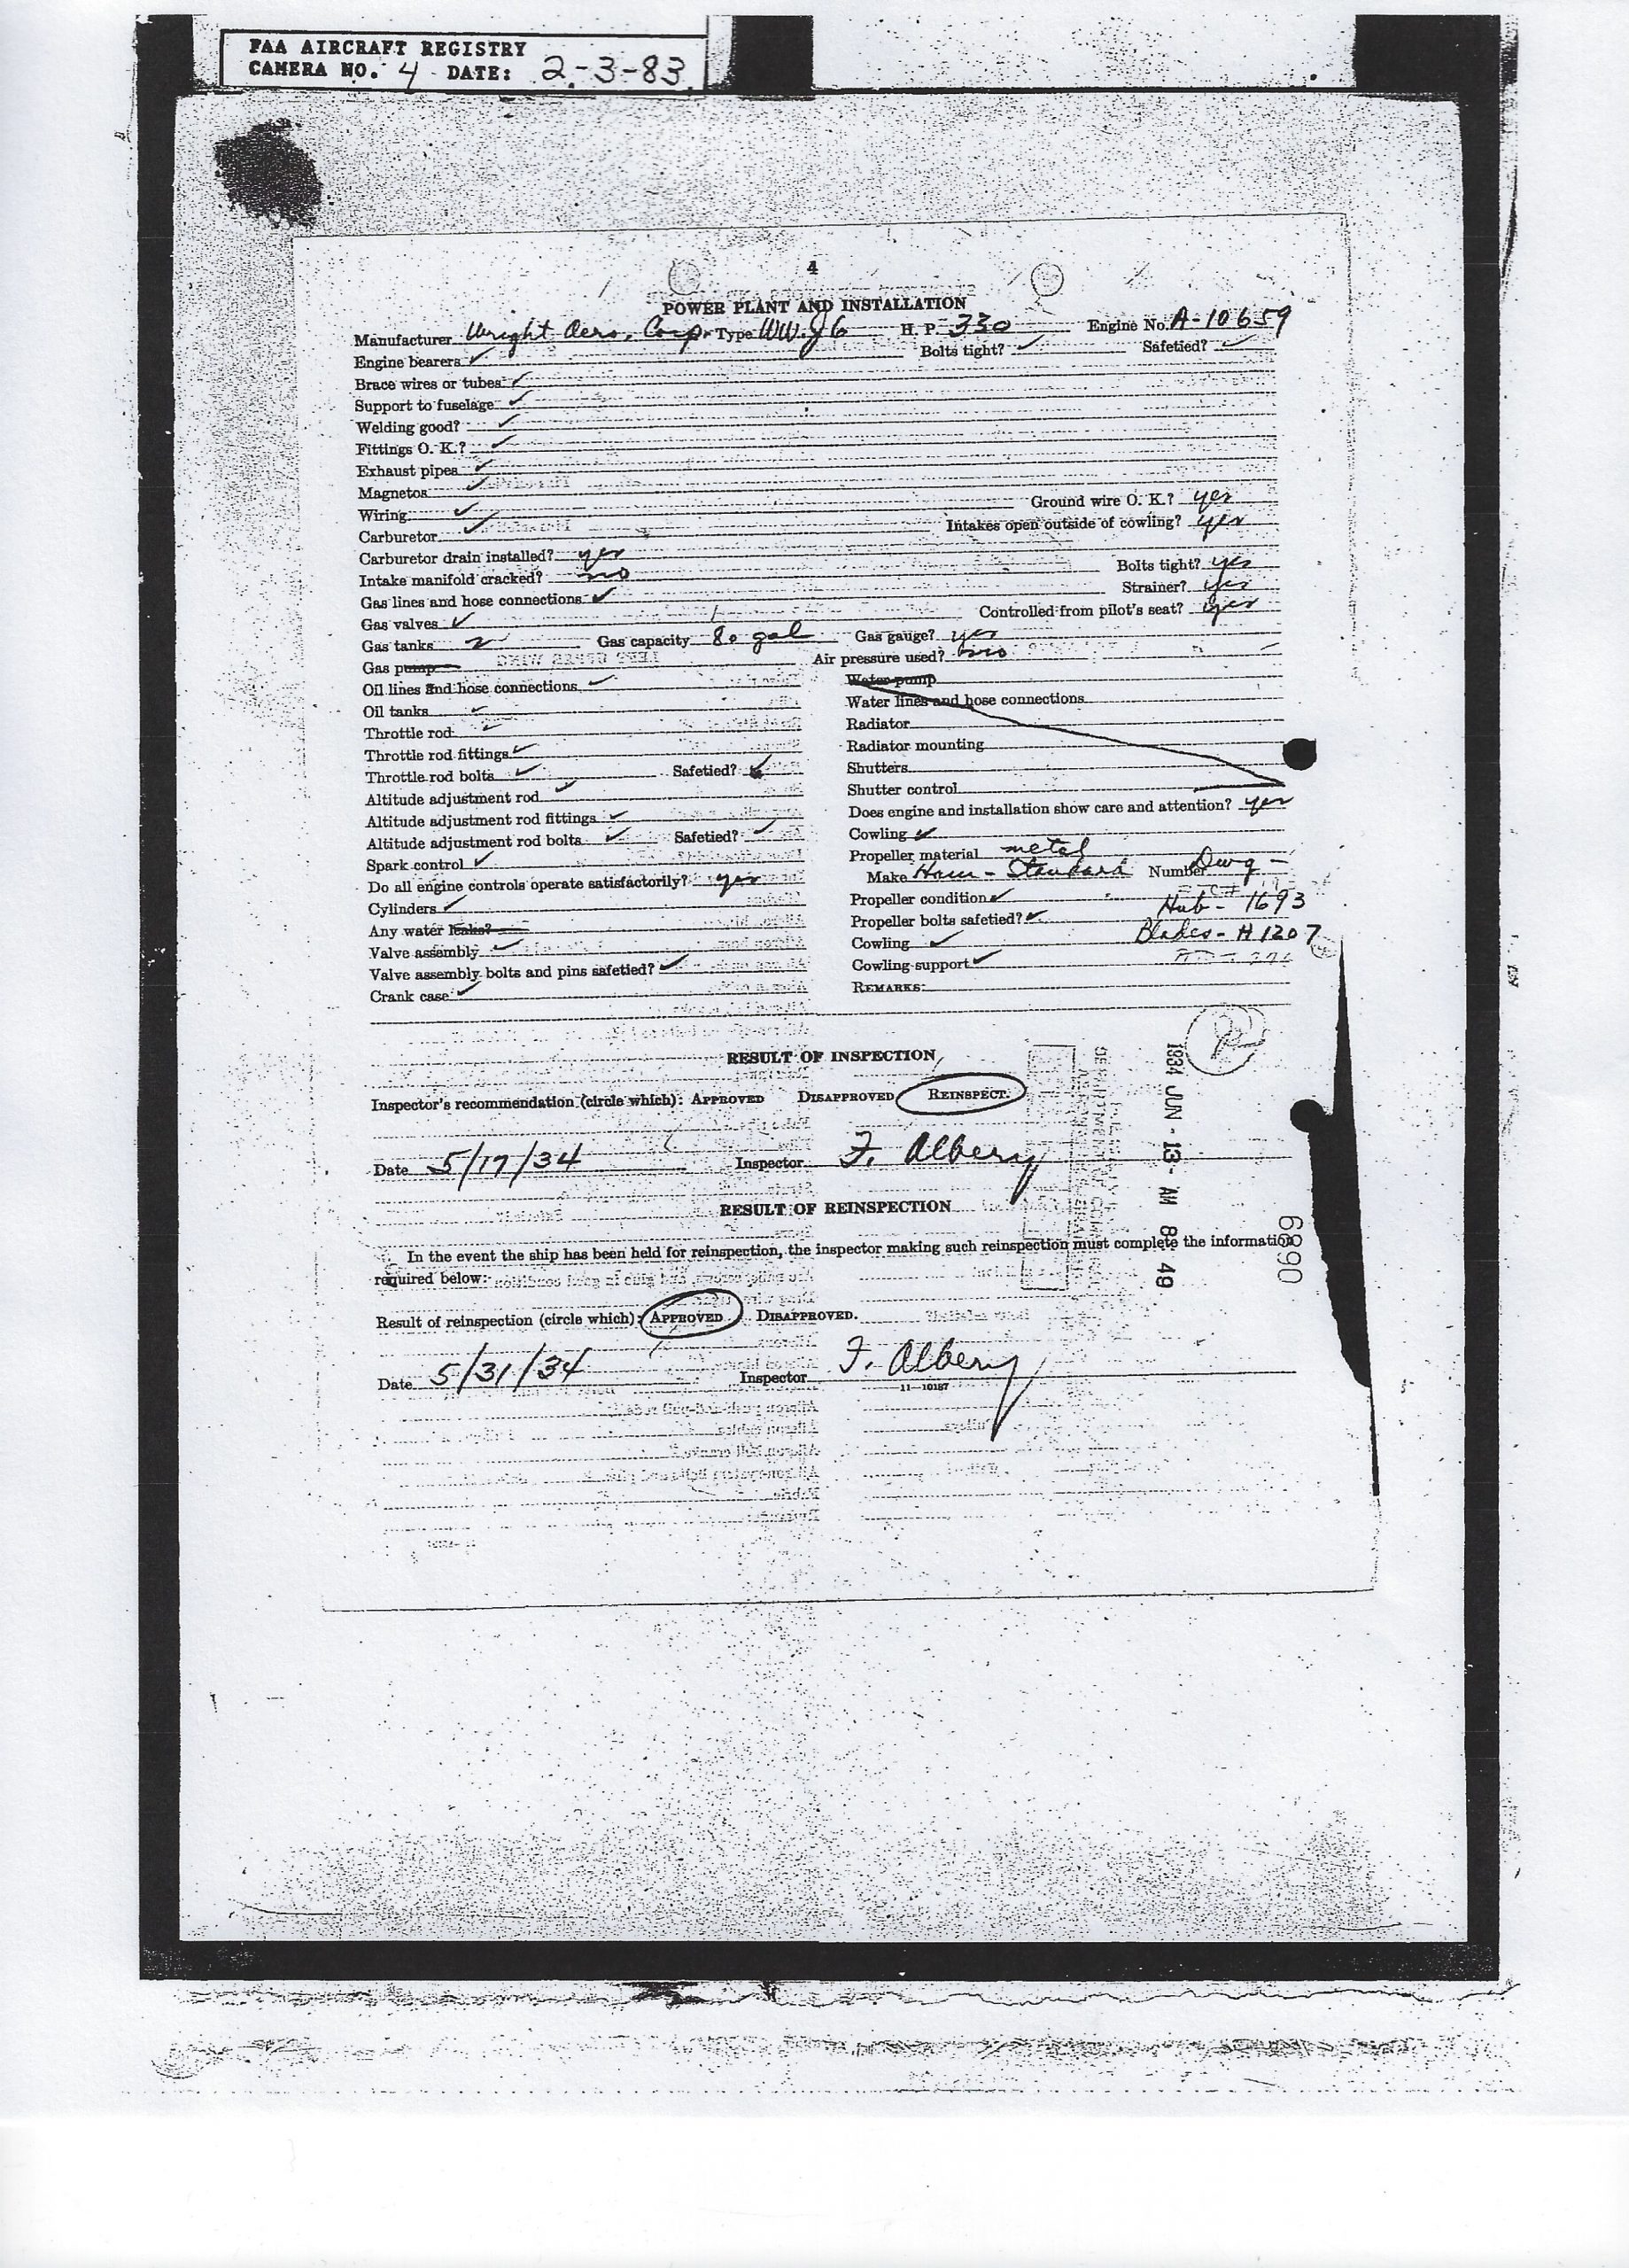 FAA AIRCRAFT REGISTRY
CAMERA NO. 4 DATE: 2-3-83
4
POWER PLANT AND INSTALLATION
Manufacturer Wright Aero. Corp. Type WW. J6 H. P. 330 Engine No. A-10659
Engine bearers ✓ Bolts tight? ✓ Safetied? ✓
Brace wires or tubes ✓
Support to fuselage ✓
Welding good? ✓
Fittings O. K.? ✓
Exhaust pipes ✓
Magnetos ✓
Wiring ✓ Ground wire O. K.? yes
Carburetor ✓ Intakes open outside of cowling? yes
Carburetor drain installed? yes
Intake manifold cracked? no Bolts tight? yes
Gas lines and hose connections ✓ Strainer? yes
Gas valves ✓ Controlled from pilot's seat? yes
Gas tanks 2 Gas capacity 80 gal Gas gauge? yes
Gas pump Air pressure used? no
Oil lines and hose connections ✓
Oil tanks ✓
Throttle rod ✓
Throttle rod fittings ✓
Throttle rod bolts ✓ Safetied? ✓
Altitude adjustment rod ✓
Altitude adjustment rod fittings ✓
Altitude adjustment rod bolts ✓ Safetied? ✓
Spark control ✓
Do all engine controls operate satisfactorily? yes
Cylinders ✓
Any water leaks?
Valve assembly ✓
Valve assembly bolts and pins safetied? ✓
Crank case ✓
Water pump
Water lines and hose connections
Radiator
Radiator mounting
Shutters
Shutter control
Does engine and installation show care and attention? yes
Cowling ✓
Propeller material metal
Make Ham-Standard Number Dwg -
Propeller condition ✓ Hub - 1693
Propeller bolts safetied? ✓
Cowling ✓ Blades - H 1207
Cowling support ✓
REMARKS:
RESULT OF INSPECTION
Inspector's recommendation (circle which): APPROVED DISAPPROVED REINSPECT.
Date 5/17/34 Inspector F. Albery
RESULT OF REINSPECTION
In the event the ship has been held for reinspection, the inspector making such reinspection must complete the information
required below:
Result of reinspection (circle which): APPROVED DISAPPROVED.
Date 5/31/34 Inspector F. Albery
11—10187
1934 JUN - 13 - AM 8 49
0689